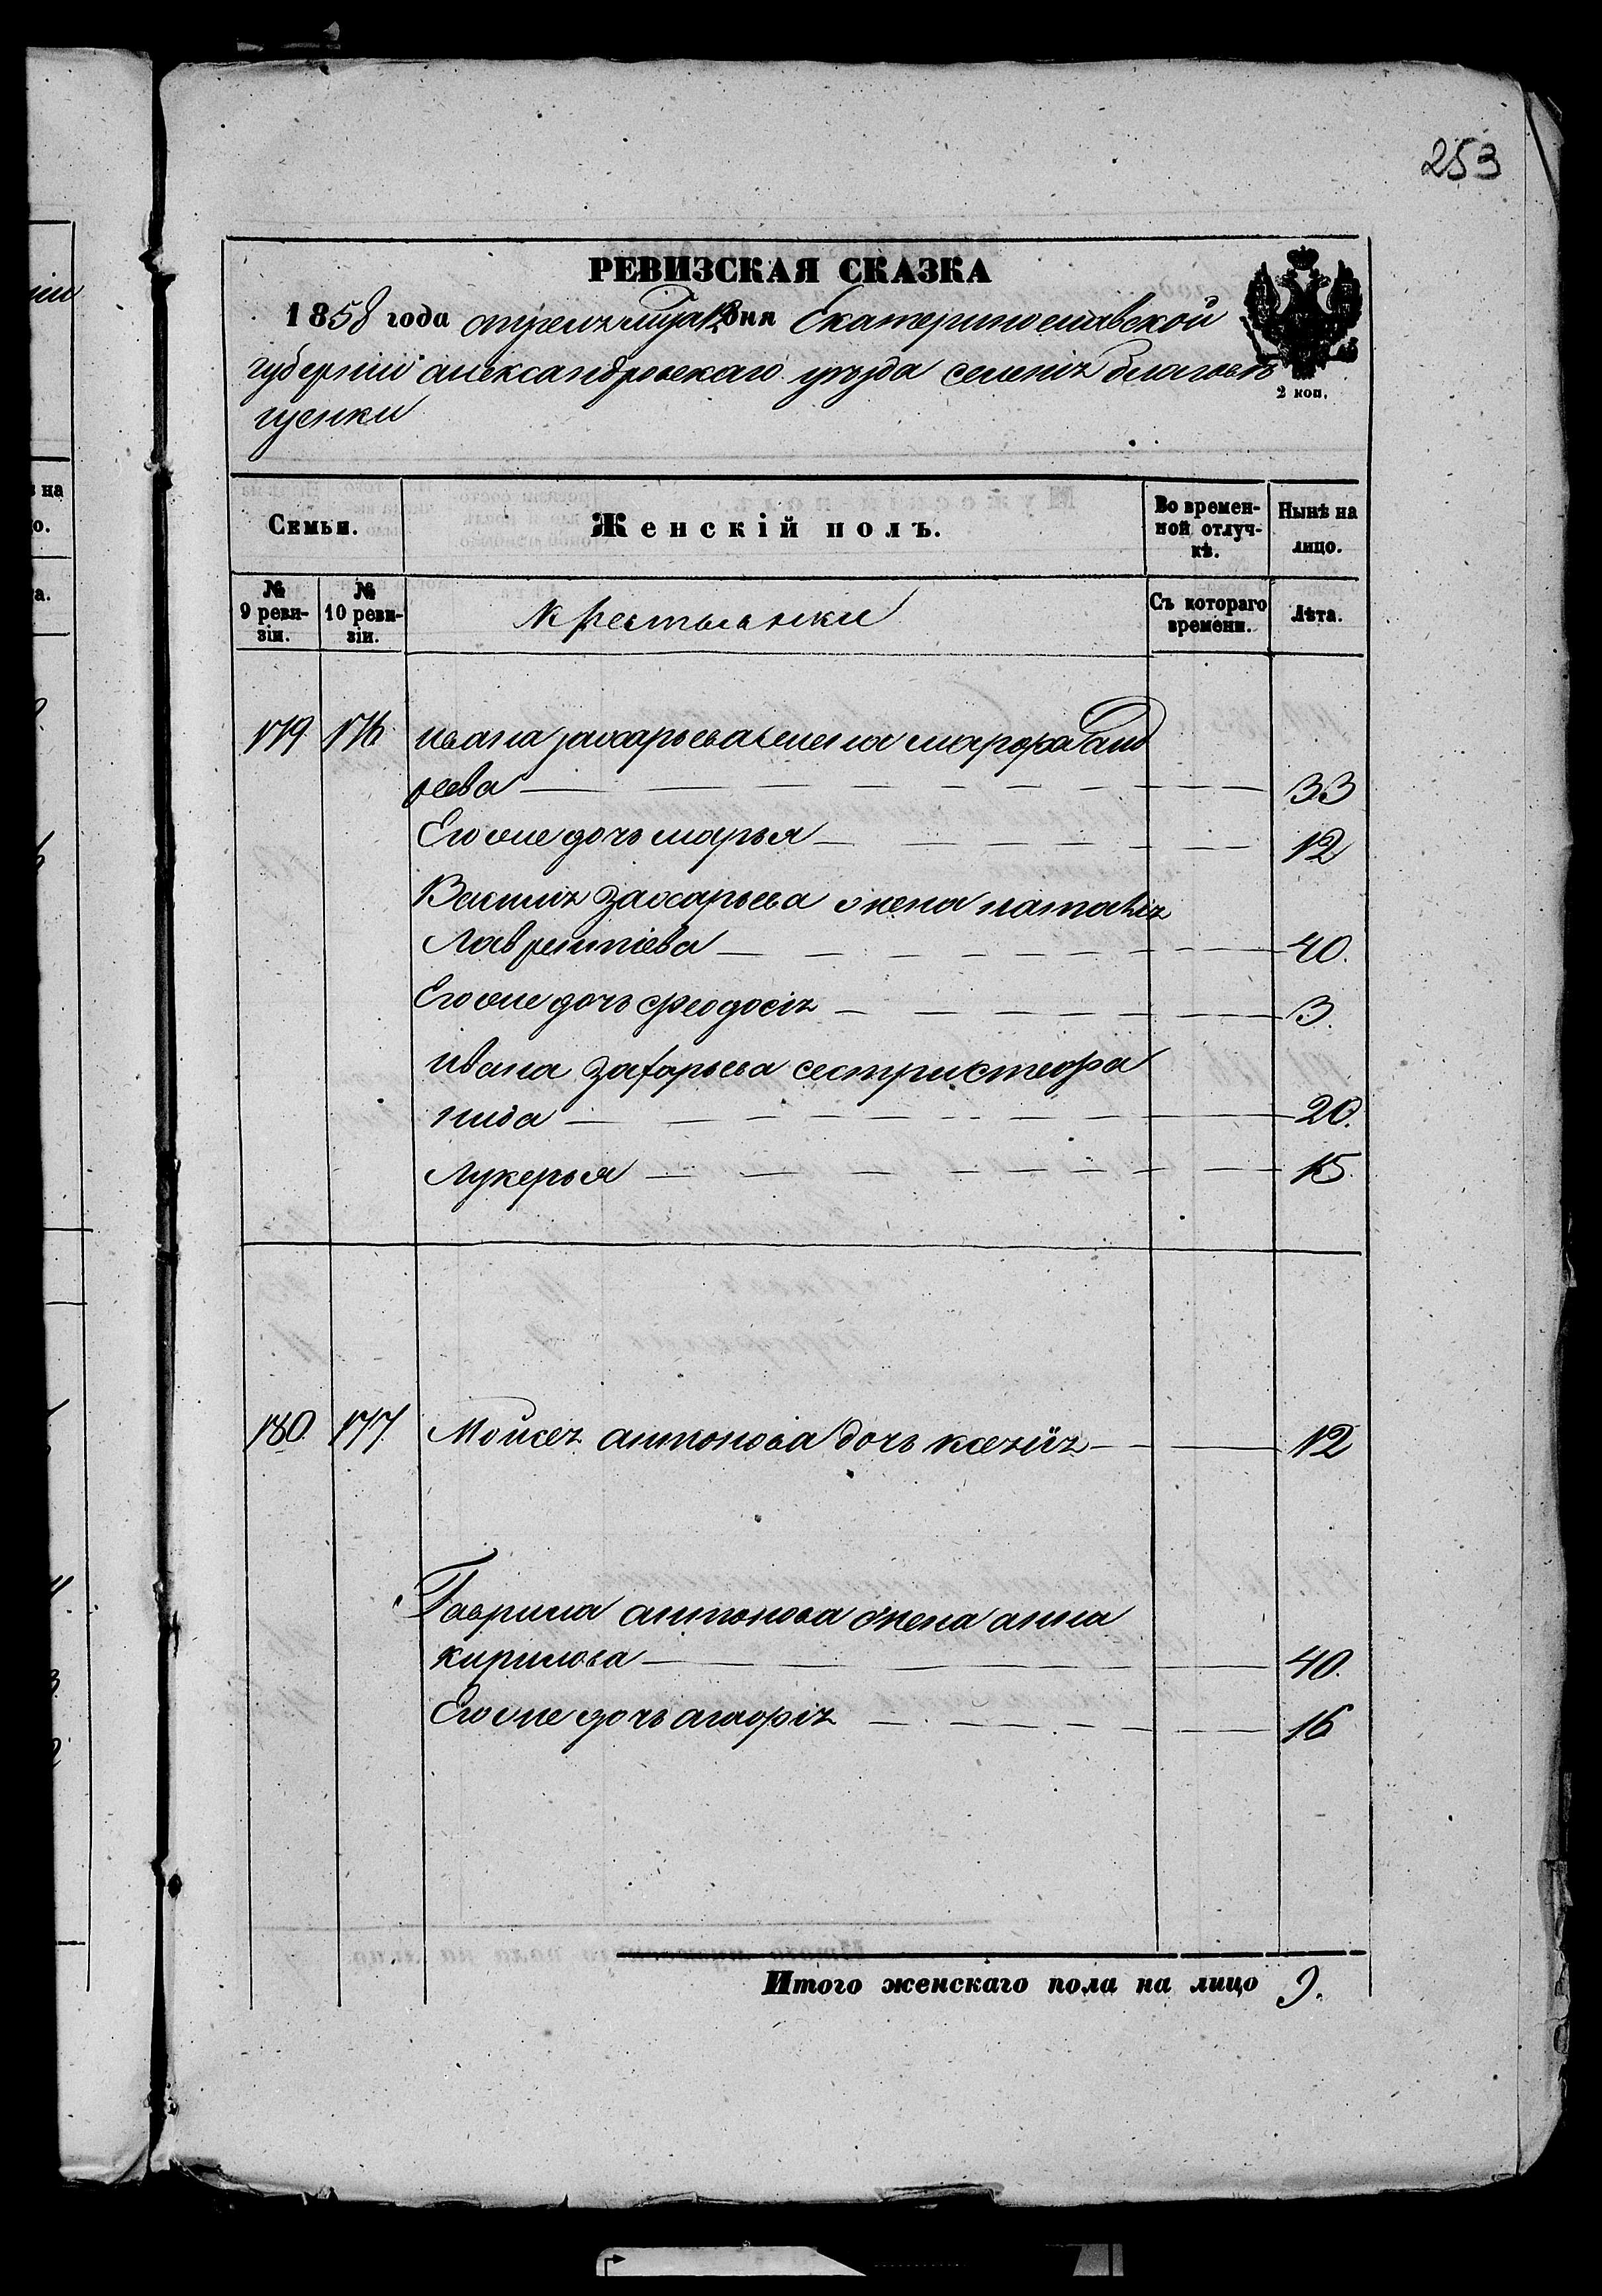 253
РЕВИЗСКАЯ СКАЗКА
1858 года апреля мца 12 дня Екатеринославской
губернiи александровскаго уезда селенiя благове
щенки
2 коп.
Семьи.
Женскій полъ.
Во времен-
ной отлуч-
кѣ.
Нынѣ на
лицо.
№
9 реви-
зіи.
№
10 реви-
зіи.
Крестьянки
Съ котораго
времени.
Лѣта.
179 176 ивана захарьева жена марфа анд
реева 33
Его же дочь марья 12
Василя Захарьева жена наталiя
Лаврентiева 40.
Его же дочь феодосiя 3.
ивана захарьева сестры стефа
нида 20.
Лукерья 15.
180. 177 Мойсея антонова дочь ксенiя 12
Гаврила антонова жена анна
кирилова 40.
Его же дочь агафiя 16
Итого женскаго пола на лицо 9.
на
о.
а.